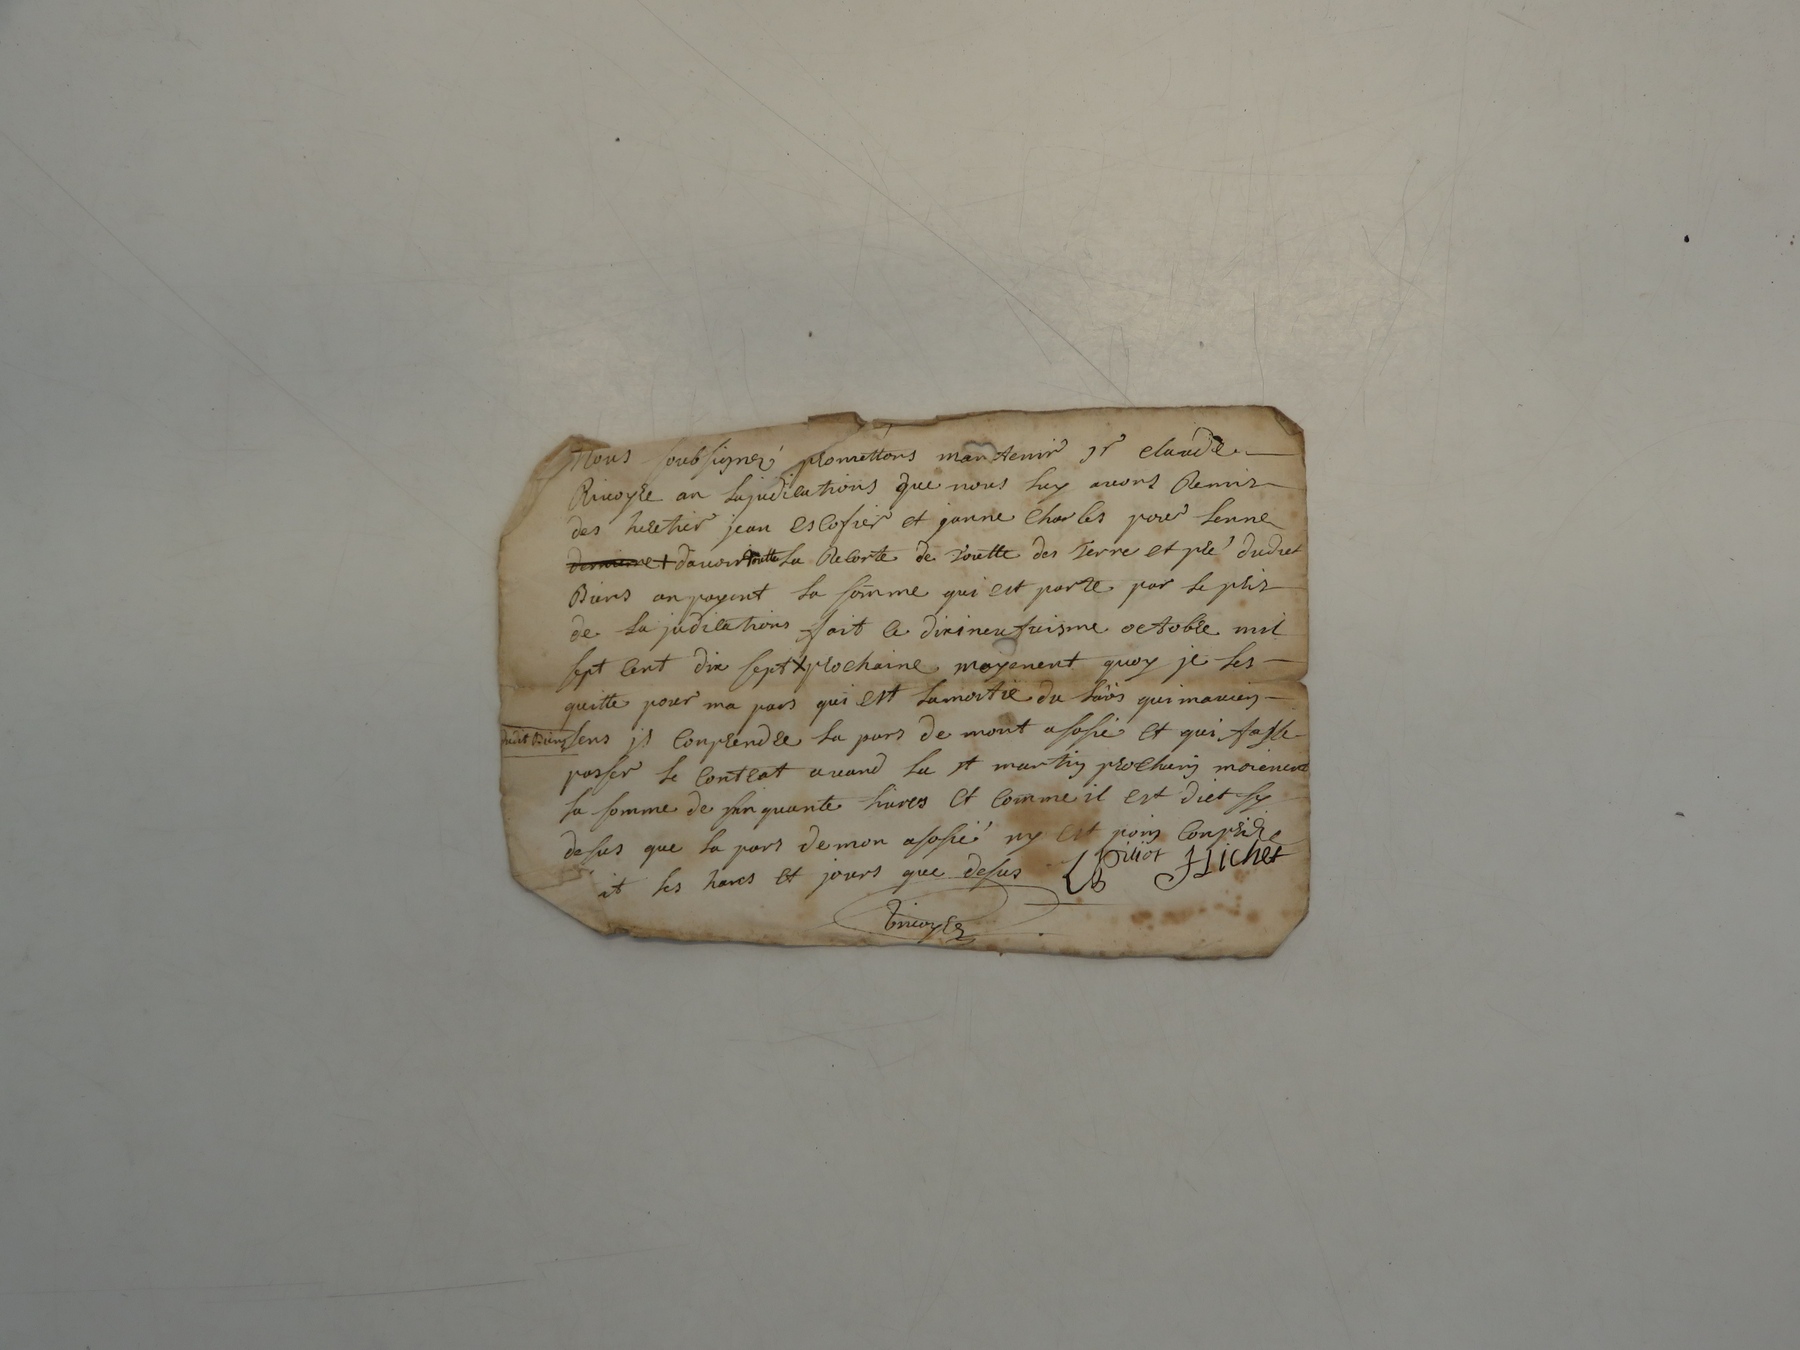 Nous soubsignez promettons mantenir sr claude
Rivoyre an lajudications que nous luy avons Remis
des heretier jean escofier et janne charles pour lenne
davoir toutte la Recorte de toutte des Terre et pre dudict
Biens an payent la somme qui est porte par le pris
de lajudications fait le disineufviesme octobre mil
sept cent dix sept prochaine moyenent quoy je les
quitte pour ma pars qui est lamoitie du
dudit Biens sens js conprendre la pars de mont assosie et qui fasse
passer le contrat avand la st martin prochain moienent
la somme de sinquante livres et comme il est dict sy
desus que la pars de mon assosie ny est poin conprise
it les hans et jours que desus Pitiot Fichet
Rivoyre